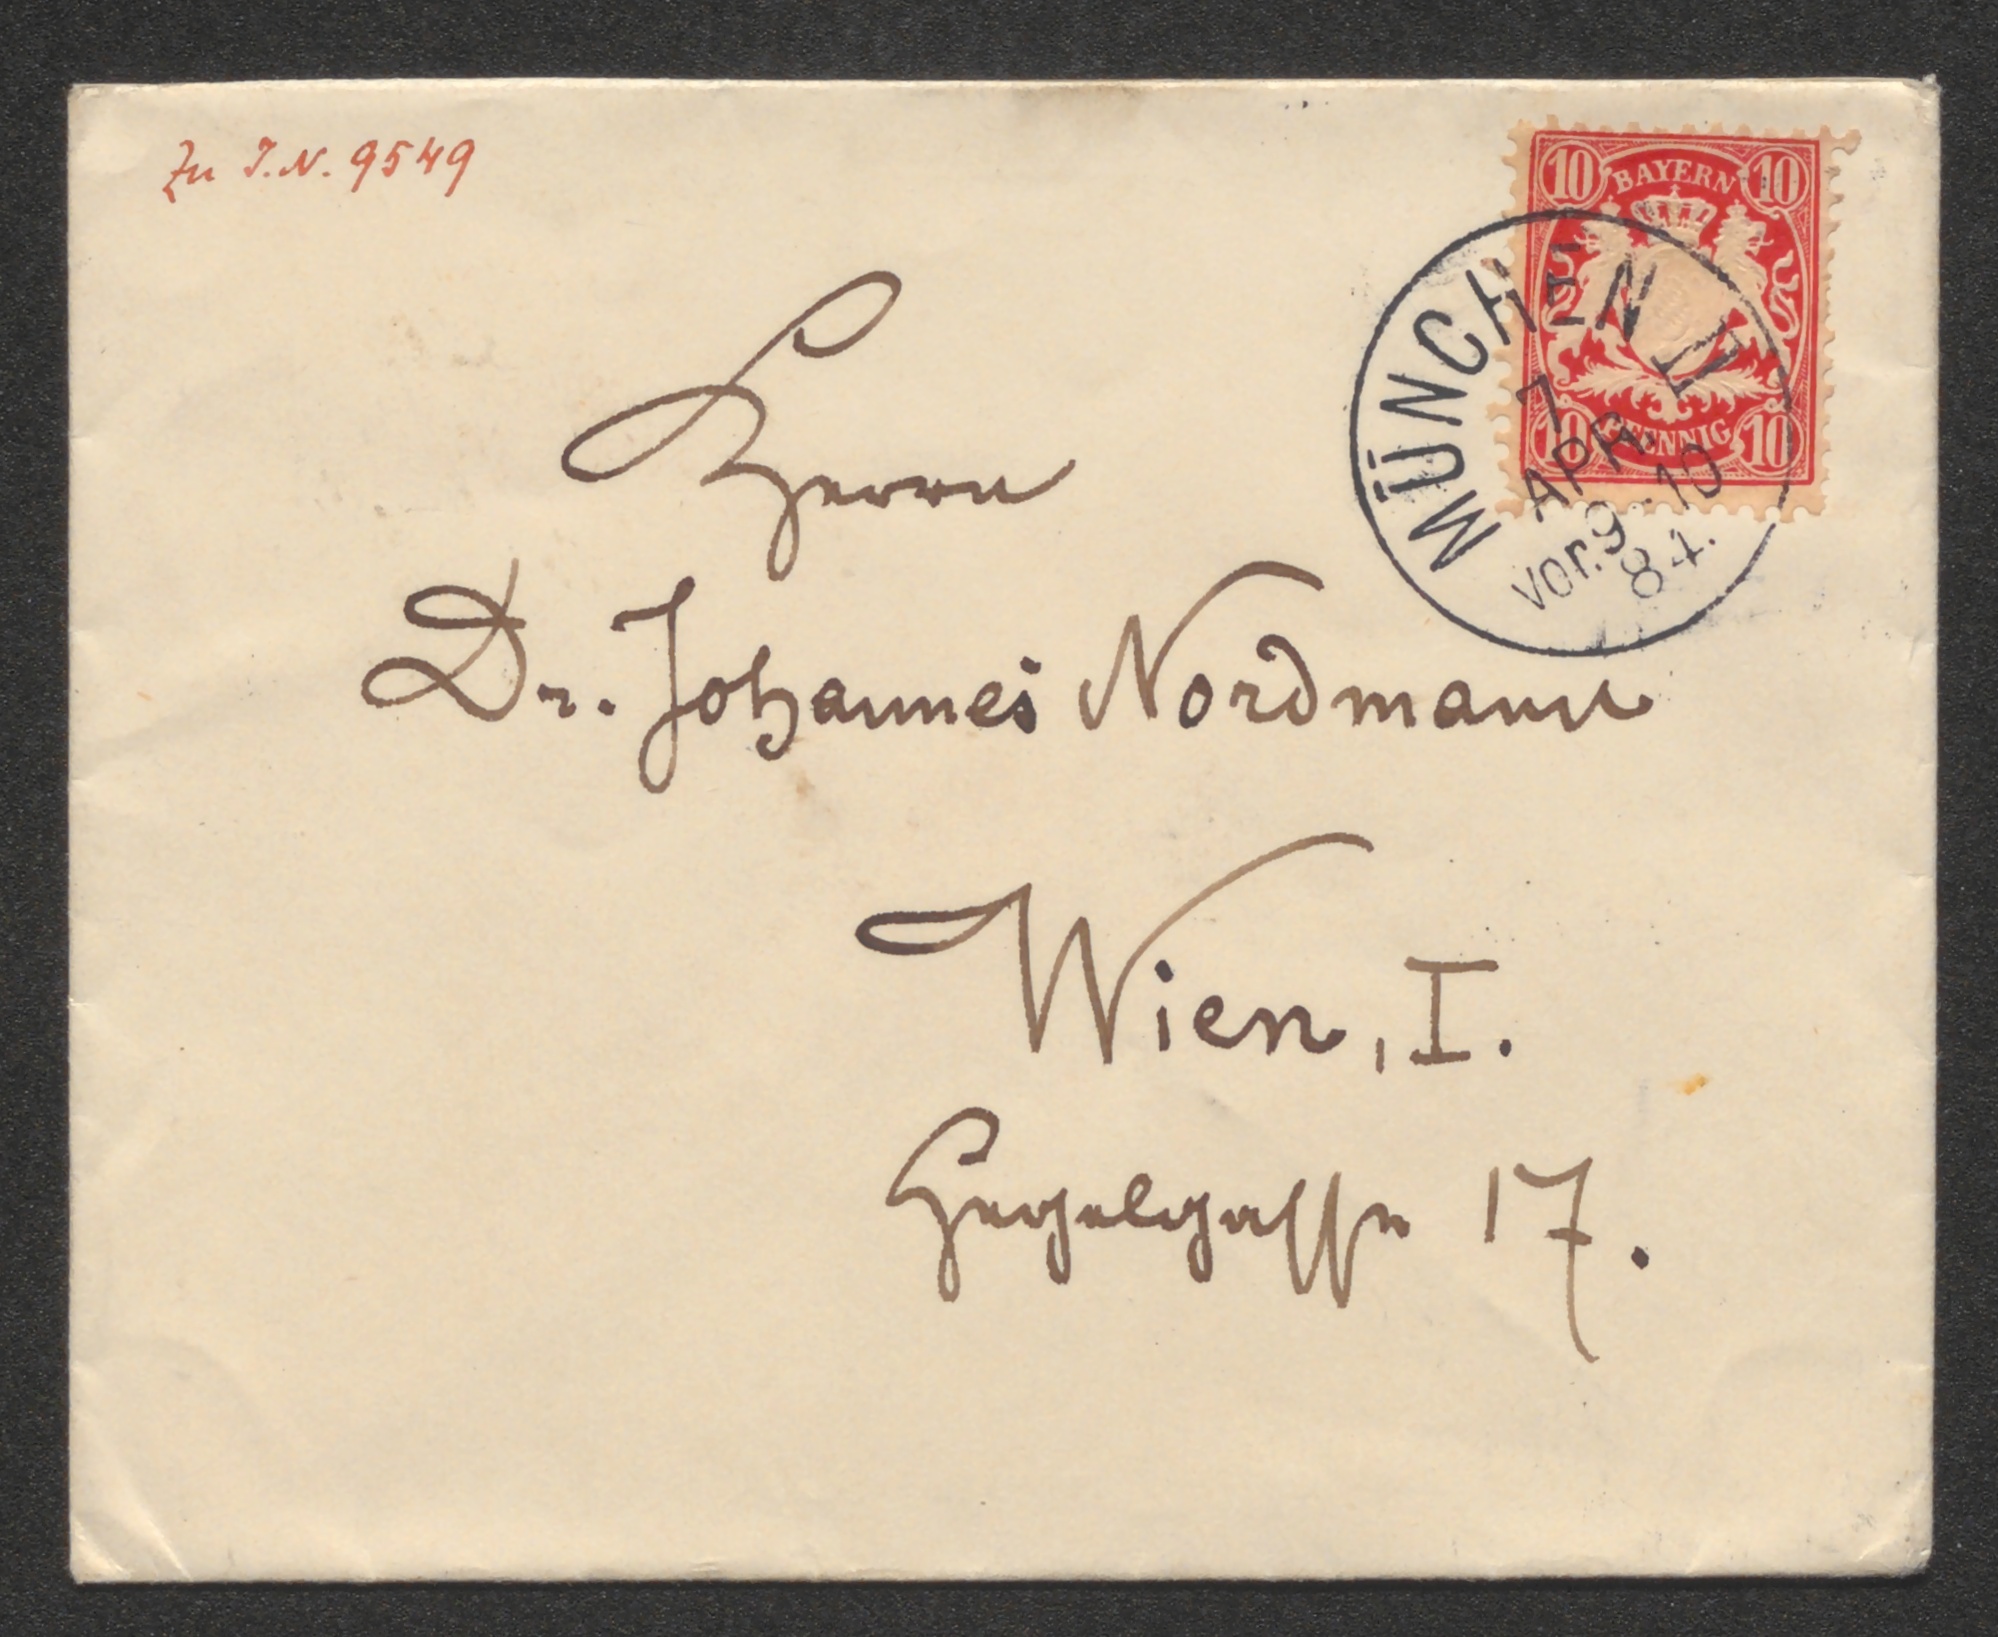 Zu I.N. 9549
10 BAYERN 10
10 PFENNIG 10
MÜNCHEN II
7
APR.
vor. 9-10
84.
Herrn
Dr. Johannes Nordmann
Wien, I.
Hegelgasse 17.